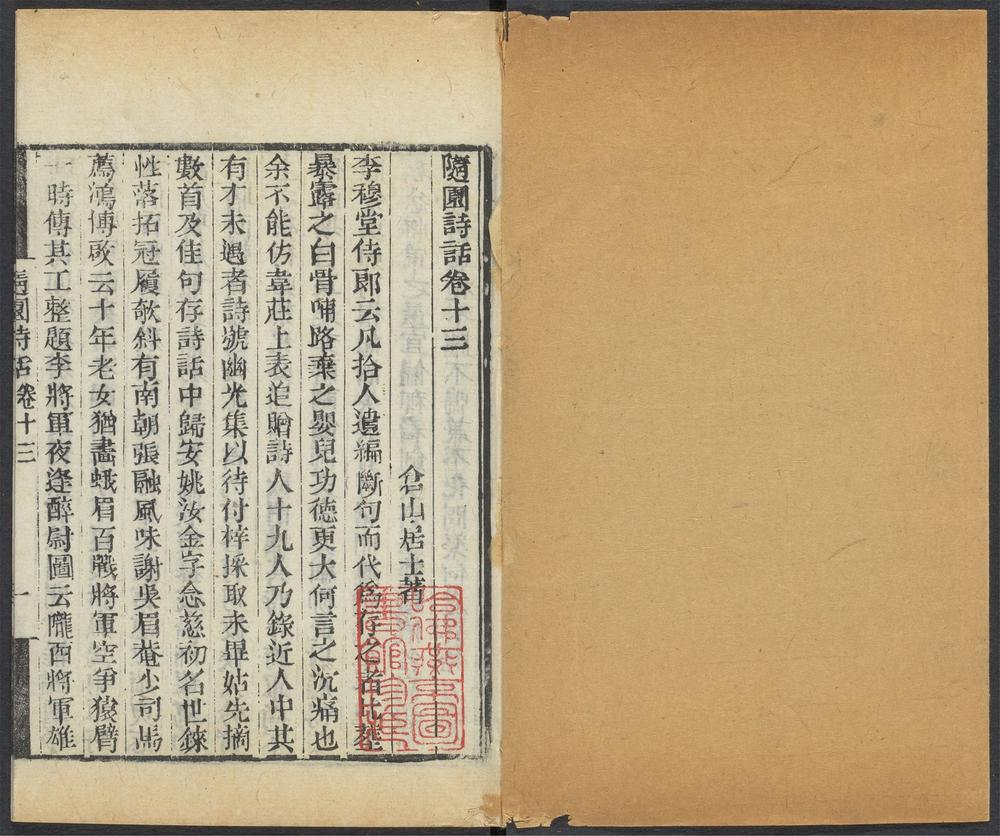 隨園詩話卷十三
倉山居士著
李穆堂侍郎云凡拾人遺編斷句而代爲存之者比葬
暴露之白骨哺路棄之嬰兒功德更大何言之沉痛也
余不能仿韋莊上表追贈詩人十九人乃錄近人中其
有才未遇者詩號幽光集以待付梓採取未畢姑先摘
數首及佳句存詩話中歸安姚汝金字念慈初名世錸
性落拓冠履欹斜有南朝張融風味謝吳眉菴少司馬
薦鴻博啟云十年老女猶畵蛾眉百戰將軍空爭猿臂
一時傳其工整題李將軍夜逢醉尉圖云隴西將軍雄
隨園詩話卷十三
一